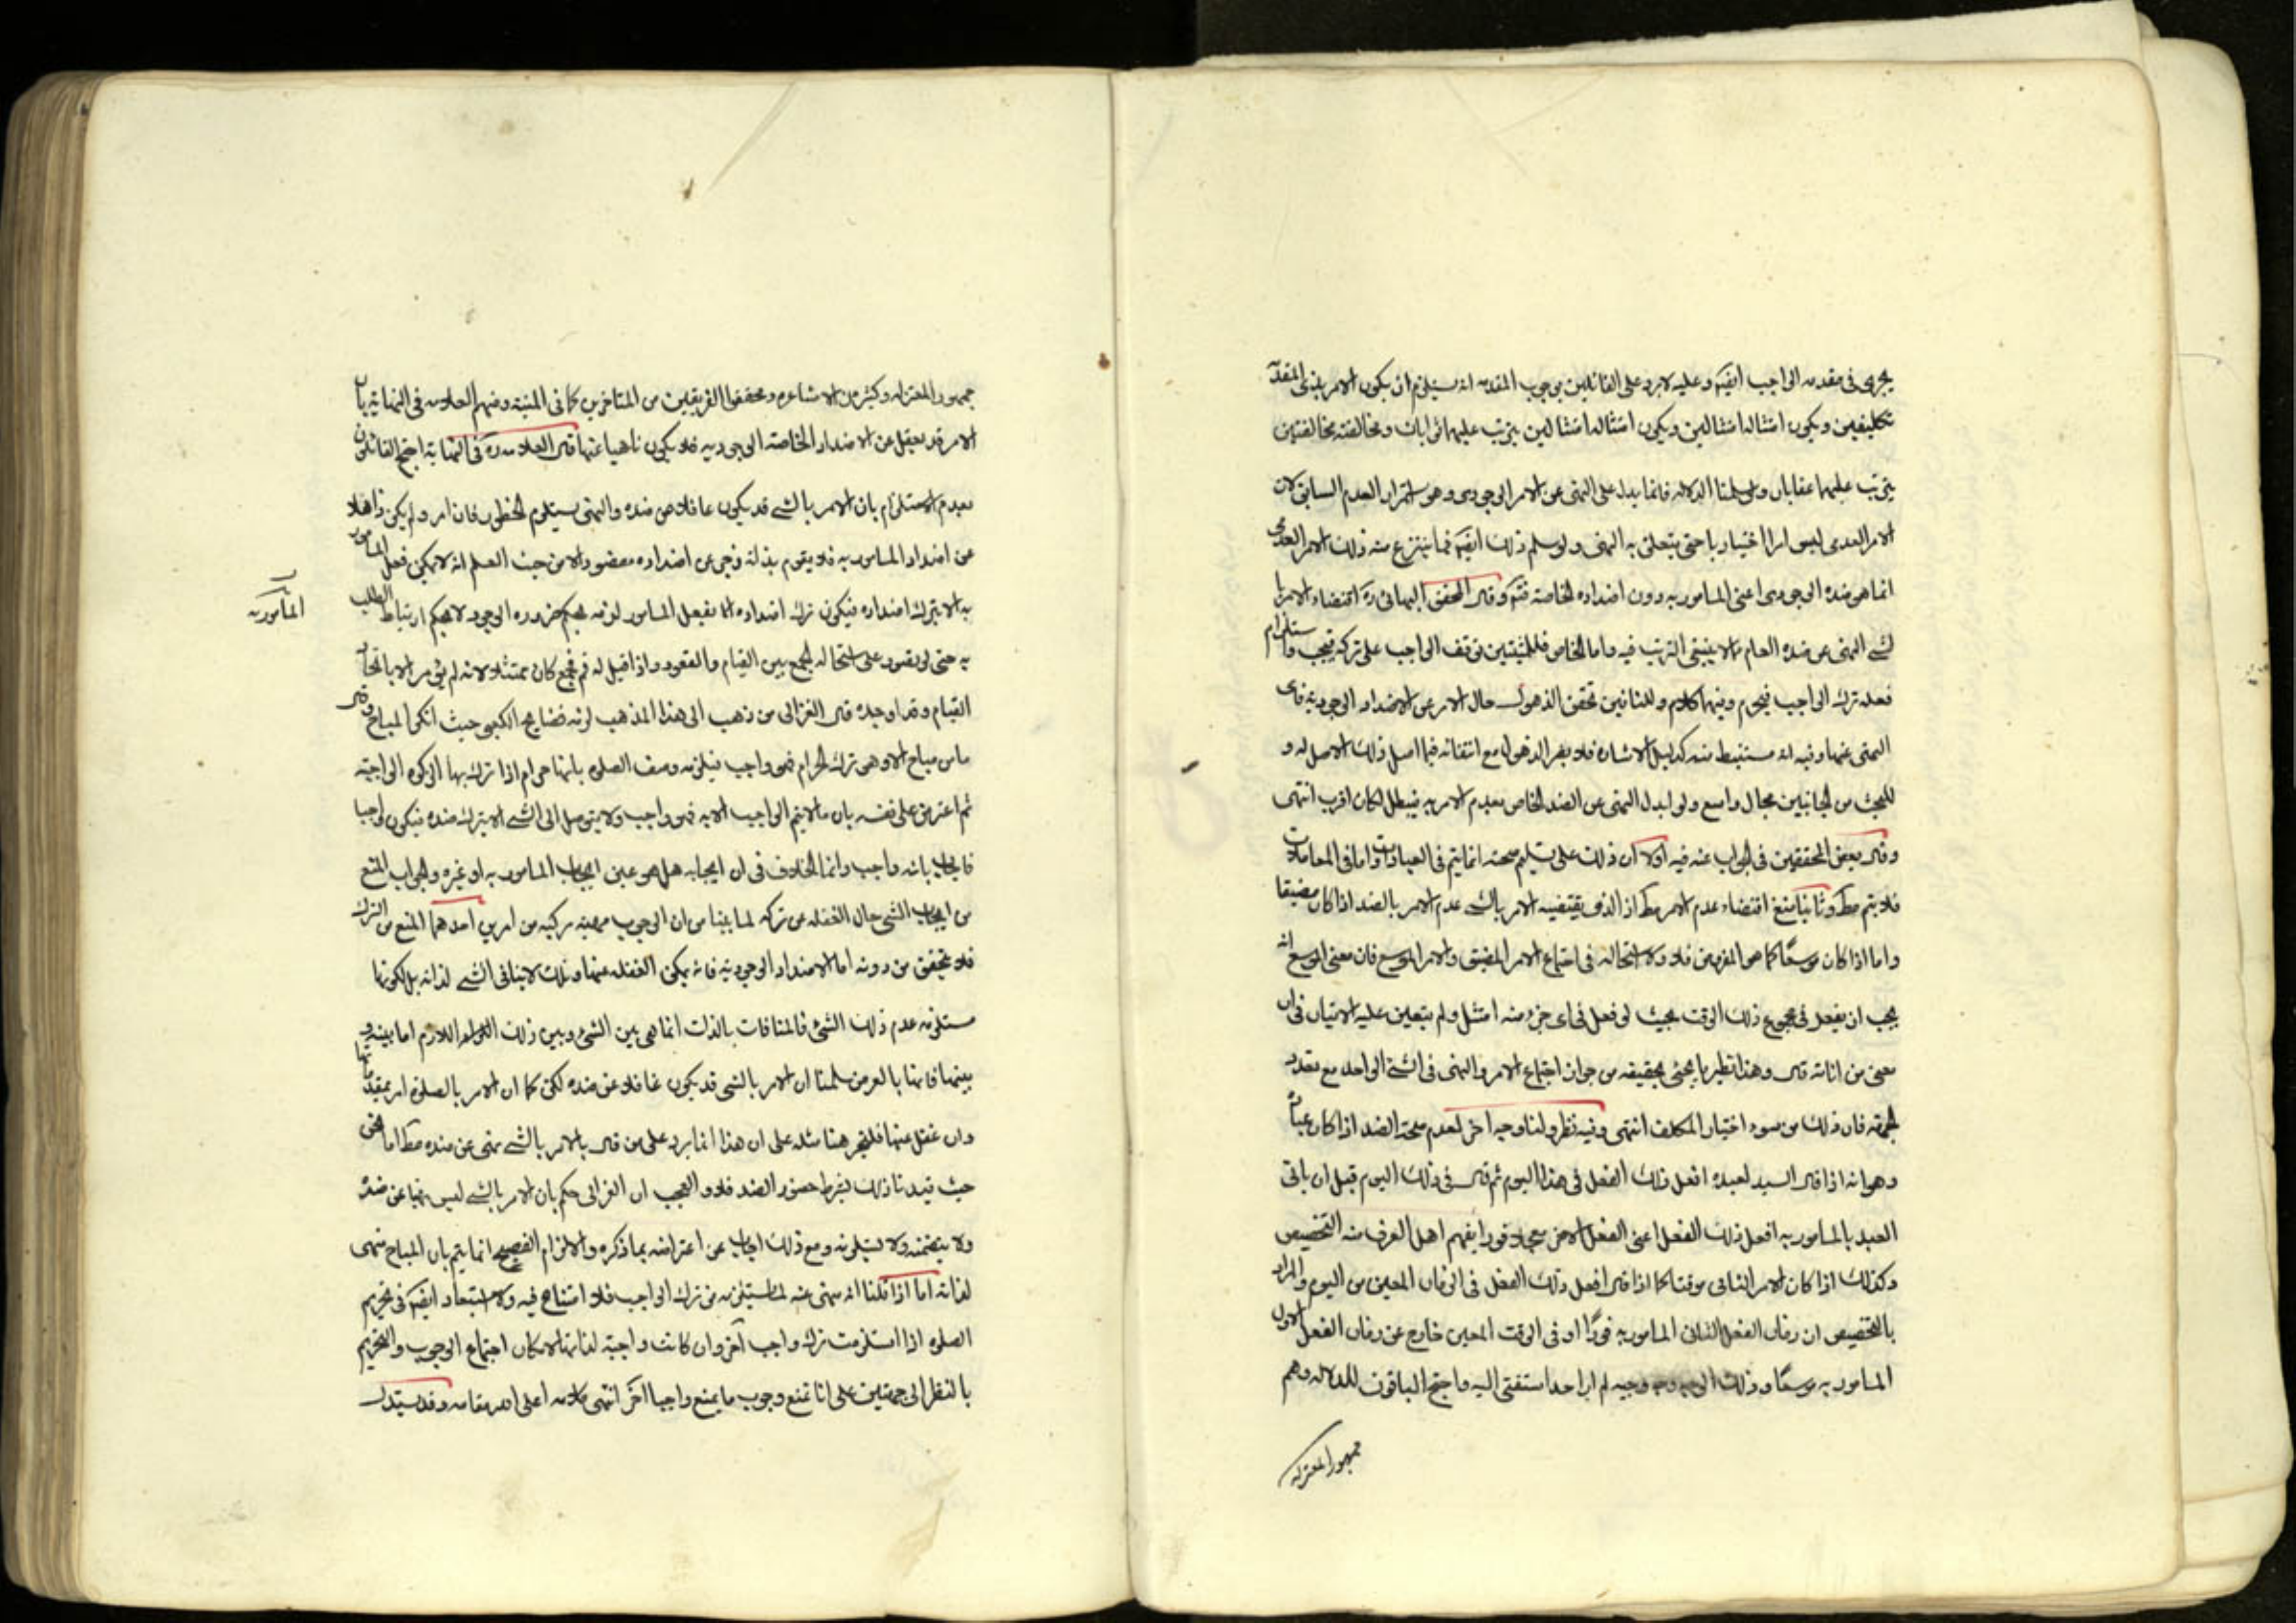 يجرى فى مقدمه الواجب ايضم وعليه لابرد على القائلين بوجوب المقدمه انه يستلزم ان يكون الامر بذى المقدمه
تكليفين ويكون امتثاله امتثالين ويكون امتثاله امتثالين يترتب عليهما ثوابان ومخالفته مخالفتين
يترتب عليهما عقابان ولو سلمنا الدلاله فانما يدل على النهى عن الامر الوجودى وهو استمرار العدم السابق لان
الامر العدمى ليس امرا اختياريا حتى يتعلق به النهى ولو سلم ذلك ايضم فما ينتزع منه ذلك الامر العدمى
انما هو ضده الوجودى اعنى المامور به دون اضداده الخاصه فتم وقال المحقق البهائى ره اقتضاء الامر با
لشى النهى عن ضده العام مما لا ينبغى الترتب فيه واما الخاص فللمثبتين توقف الواجب على تركه فيجب واستلزام
فعله ترك الواجب فيحرم وفيهما كلام وللنافين تحقق الذهول حال الامر عن الاضداد الوجوديه فاى
النهى عنها وفيه انه مستنبط منه كدليل الاشاره فلا يضر الذهول مع انتفائه فيما اصل ذلك الاصل له و
للبحث من الجانبين مجال واسع ولو ابدل النهى عن الضد الخاص بعدم الامر به فيبطل لكان اقرب انتهى
وقال بعض المحققين فى الجواب عنه فيه اولا ان ذلك على تسليم صحته انما يتم فى العبادات واما فى المعاملات
فلا يتم مط وثانيا منع اقتضاء عدم الامر مط اذ الذى يقتضيه الامر بالشى عدم الامر بالضد اذا كان مضيقا
واما اذا كان موسعا كما هو المفروض فلا ولا استحاله فى اجتماع الامر المضيق والامر الموسع فان معنى الموسع انه
يجب ان يفعل فى مجموع ذلك الوقت بحيث لو فعل فى اى جزء منه امتثل ولم يتعين عليه الاتيان فى ان
معين من اناته قال وهذا نظير ما يجئ تحقيقه من جواز اجتماع الامر والنهى فى الشئ الواحد مع تعدد
الجهة فان ذلك من سوء اختيار المكلف انتهى وفيه نظر ولنا وجه اخر لعدم صحة الضد اذا كان عبادة
وهو انه اذا قال السيد لعبده افعل ذلك الفعل فى هذا اليوم ثم قال فى ذلك اليوم قبل ان ياتى
العبد بالمامور به افعل ذلك الفعل اعنى الفعل الاخر فورا يفهم اهل العرف منه التخصيص
وكذلك اذا كان الامر الثانى موقتا كما اذا قال افعل ذلك الفعل فى الزمان المعين من اليوم والمراد
بالتخصيص ان زمان الفعل الثانى المامور به فورا او فى الوقت المعين خارج عن زمان الفعل الاول
المامور به موسعا وذلك وجيه لم ار احدا استفتى اليه واحتج الباقون للدلاله وهم
جمهور المعتزله
جمهور المعتزله وكثير من الاشاعره ومحققوا الفريقين من المتاخرين كما فى المنيه ومنهم العلامه فى النهايه بان
الامر قد يعقل عن الاضداد الخاصه الوجوديه فلا يكون ناهيا عنها قال العلامه ره فى النهايه احتج القائلون
بعدم الاستلزام بان الامر بالشى قد يكون غافلا من ضده والنهى يستلزم الخطور فان امر ولم يكن ذاهلا
عن اضداد المامور به فلا يقوم بذاته زجر عن اضداده مقصور الا من حيث العلم انه لا يمكن فعل المامور
المأمور به
به الا بترك اضداده فيكون ترك اضداده انما بفعل المامور لزمه بحكم ضروره الوجود لا بحكم ارتباط الطلب
به حتى لو تصور على استحاله الجمع بين القيام والقعود واذا قيل له قم فجمع كان ممتثلا لانه لم يؤمر الا بايجاد
القيام وقد اوجده قال الغزالى من ذهب الى هذا المذهب لزمه فضايح الكعبى حيث انكر المباح وقال
ما من مباح الا وهو ترك الحرام فهو واجب فيلزمه وصف الصلوة بانها حرام اذا ترك بها الزكوة الواجبة
ثم اعترض على نفسه بان ما لا يتم الواجب الا به فهو واجب ولا يتوصل الى الشى الا بترك ضده فيكون واجبا
فاجاب بانه واجب وانما الخلاف فى ان ايجابه هل هو عين ايجاب المامور به او غيره والجواب المنع
من ايجاب الشى حال الغفله عن تركه لما بينا من ان الوجوب مهيته مركبه من امرين احدهما المنع من الترك
فلا يتحقق من دونه اما الاضداد الوجودية فانه يمكن الغفله عنها وتلك لا ينافى الشى لذاته بل لكونها
مستلزمه عدم ذلك الشئ فالمنافات بالذات انما هى بين الشئ وبين ذلك اللازم اما بينه و
بينها فانها بالعرض سلمنا ان الامر بالشى قد يكون غافلا عن ضده لكن كما ان الامر بالصلوة امر بمقدماتها
وان غفل عنها فليجر هنا مثله على ان هذا انما يرد على من قال بالامر بالشى نهى عن ضده مط اما نحن
حيث قيدنا ذلك بشرط حضور الضد فلا والعجب ان الغزالى حكم بان الامر بالشى ليس نهيا عن ضده
ولا يتضمنه ولا يستلزمه ومع ذلك اجاب عن اعتراضه بما ذكره والالزام الفصيح انما يتم بان المباح منهى
لذاته اما اذا قلنا انه منهى عنه لما يستلزمه من ترك الواجب فلا امتناع فيه ولا استبعاد ايضم فى تحريم
الصلوة اذا استلزمت ترك واجب آخر وان كانت واجبة لذاتها لامكان اجتماع الوجوب والتحريم
بالنظر الى جهتين على انا نمنع وجوب ما يمنع واجبا اخر انتهى كلامه اعلى الله مقامه وقد يستدل